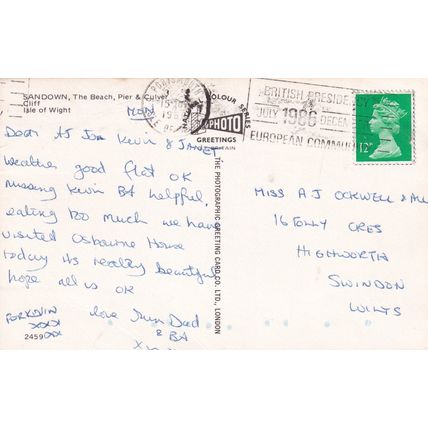 SANDOWN, The Beach, Pier & Culver
Cliff
Isle of Wight
MON
Dear AJ Jon Kevin & JANET
weather good flat OK
missing Kevin BA helpful,
eating too much we have
visited Osbourne House
today its really beautiful
hope all is OK
love Mum Dad
& BA
FOR KEVIN
XXX
2459
COLOUR SERIES
PHOTO
GREETINGS
THE PHOTOGRAPHIC GREETING CARD CO. LTD., LONDON
PORTSMOUTH
BRITISH PRESIDENCY
JULY 1986 DECEM
EUROPEAN COMMUN
12P
MISS A J COCKWELL & ALL
16 FOLLY CRES
HIGHWORTH
SWINDON
WILTS